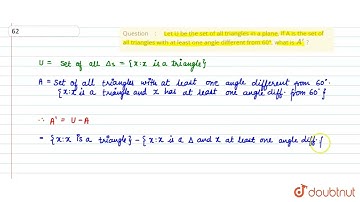 62
Question : Let U be the set of all triangles in a plane. If A is the set of
all triangles with at least one angle different from 60°, what is A' ?
U = Set of all Δs = {x:x is a triangle}
A = Set of all triangles with at least one angle different from 60°.
{x:x is a triangle and x has at least one angle diff. from 60°}
∴ A' = U - A
= {x:x is a triangle} - {x:x is a Δ and x at least one angle diff.}
doubtnut